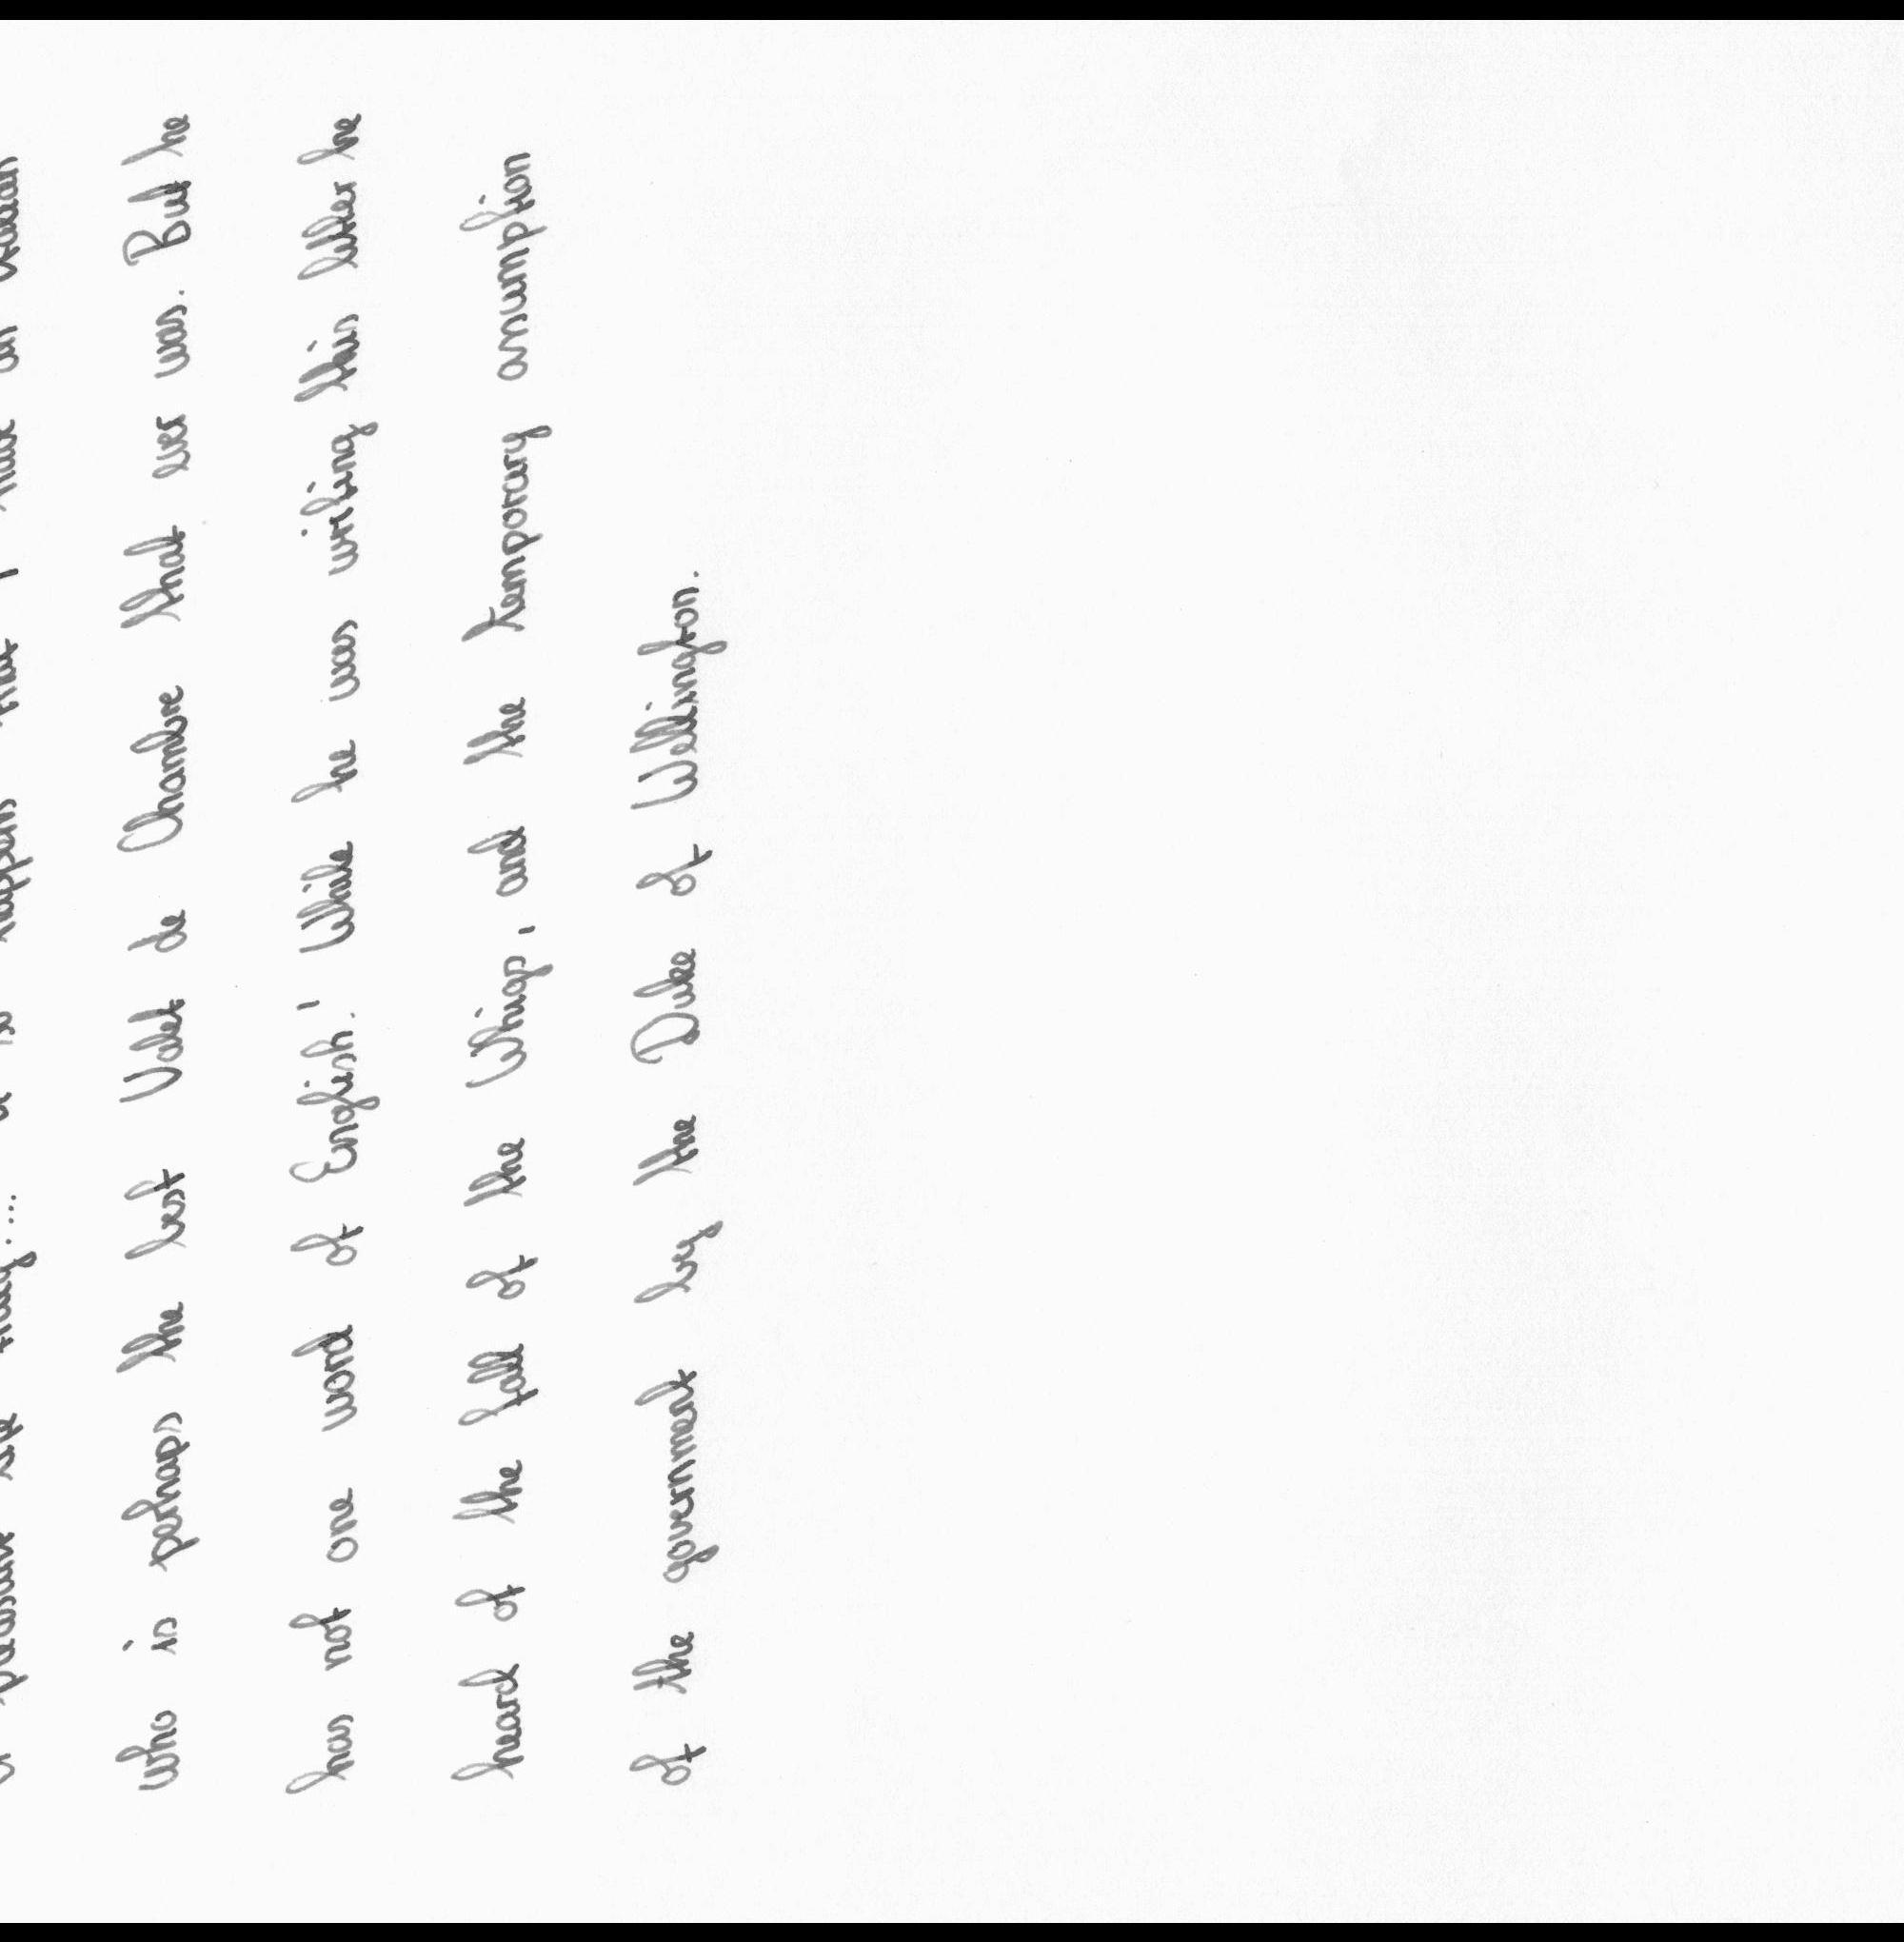 a pleasant ... it so happens that I have an Italian
who is perhaps the best Valet de Chambre that ever was. But he
has not one word of English.' While he was writing this letter he
heard of the fall of the Whigs, and the temporary assumption
of the government by the Duke of Wellington.